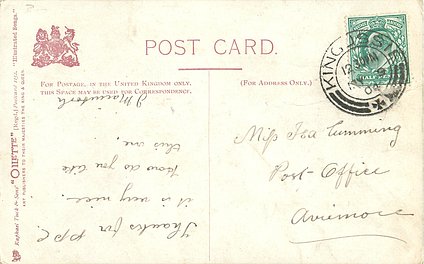 POST CARD.
FOR POSTAGE, IN THE UNITED KINGDOM ONLY,
THIS SPACE MAY BE USED FOR CORRESPONDENCE.
(FOR ADDRESS ONLY.)
Raphael Tuck & Sons' "OILETTE" [Regd.] Postcard "Illustrated Songs."
ART PUBLISHERS TO THEIR MAJESTIES THE KING & QUEEN.
Thanks for P.P.C.
it is very nice.
How do you like
this one.
Macintosh
Miss Cumming
Post-Office
Aviemore
KINGUSSIE
04
HALF